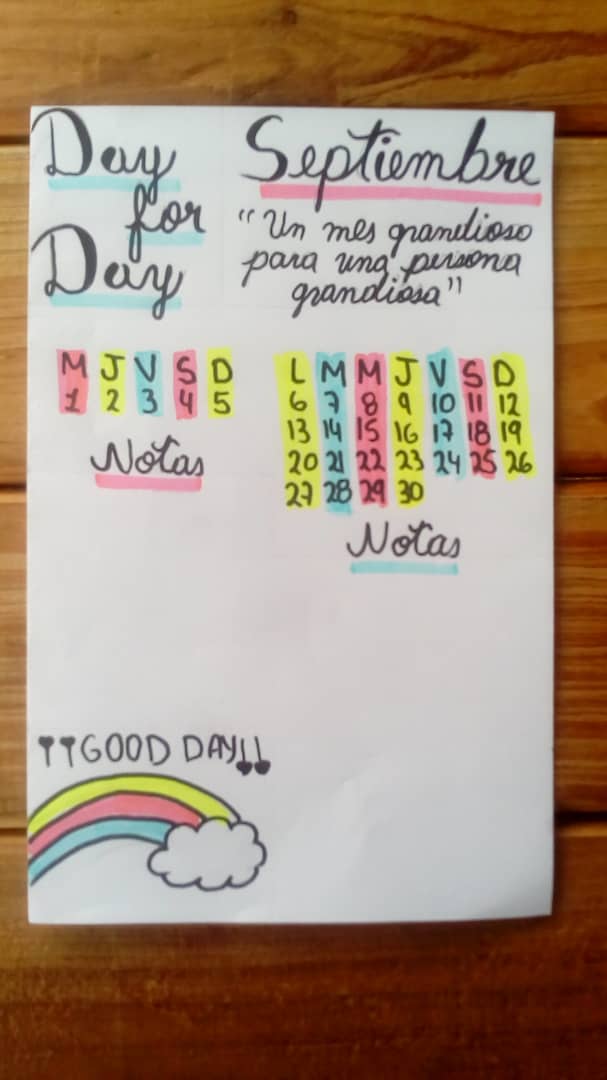 Day
for
Day
Septiembre
"Un mes grandioso
para una persona
grandiosa"
M J V S D
1 2 3 4 5
Notas
L M M J V S D
6 7 8 9 10 11 12
13 14 15 16 17 18 19
20 21 22 23 24 25 26
27 28 29 30
Notas
¡¡GOOD DAY!!